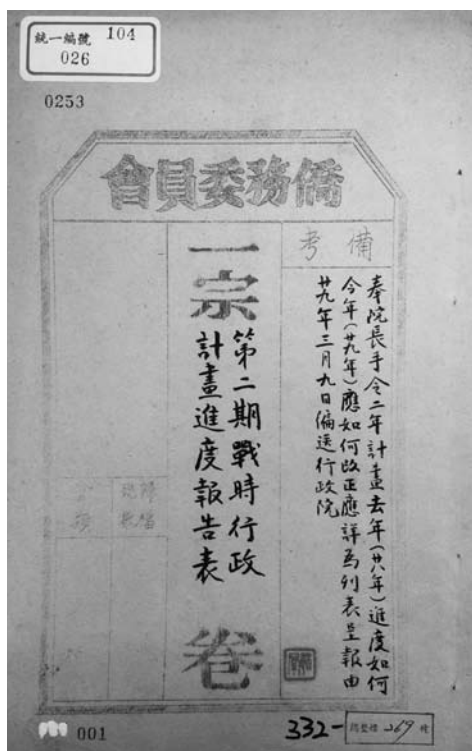 統一編號 104
026
0253
僑務委員會
備考
奉院長手令二年計畫去年(廿八年)進度如何
今年(廿九年)應如何改正應詳為列表呈報由
廿九年三月九日編送行政院
一宗
第二期戰時行政
計畫進度報告表
卷
001
332-
269 號